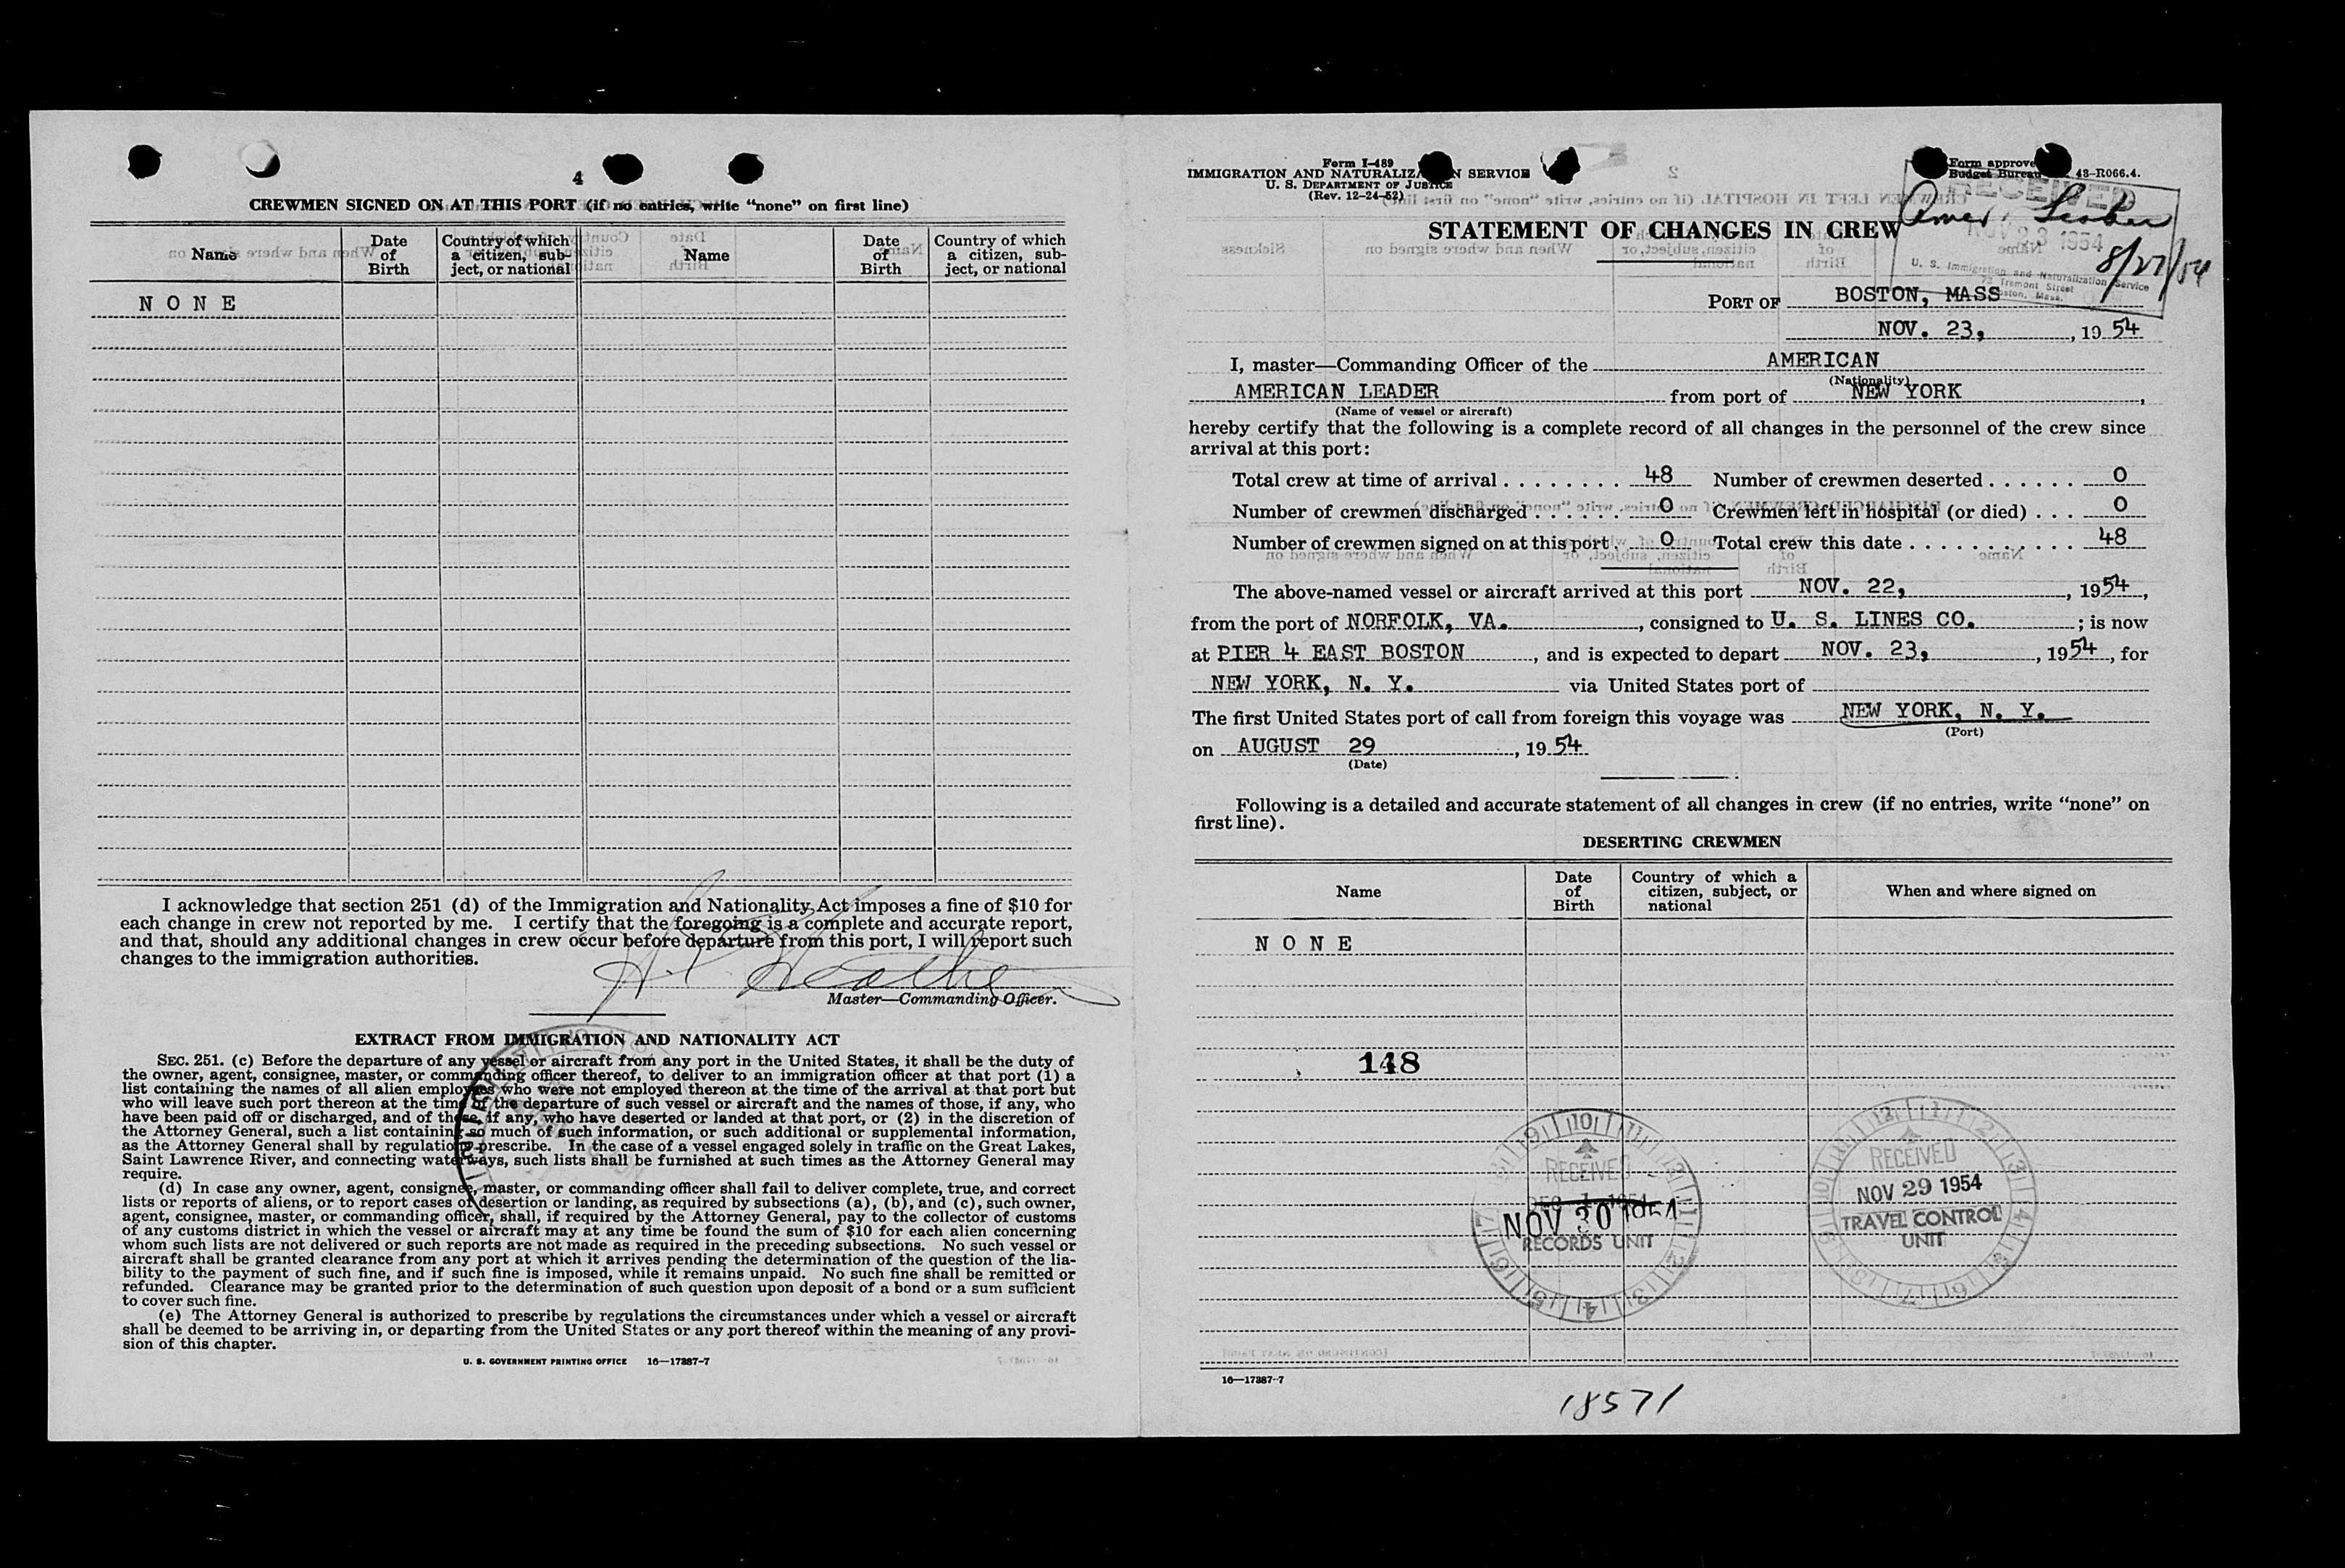 4
CREWMEN SIGNED ON AT THIS PORT (if no entries, write “none” on first line)
Name
Date of Birth
Country of which a citizen, sub-ject, or national
Name
Date of Birth
Country of which a citizen, sub-ject, or national
N O N E
I acknowledge that section 251 (d) of the Immigration and Nationality Act imposes a fine of $10 for
each change in crew not reported by me. I certify that the foregoing is a complete and accurate report,
and that, should any additional changes in crew occur before departure from this port, I will report such
changes to the immigration authorities.
Master—Commanding Officer.
EXTRACT FROM IMMIGRATION AND NATIONALITY ACT
SEC. 251. (c) Before the departure of any vessel or aircraft from any port in the United States, it shall be the duty of
the owner, agent, consignee, master, or commanding officer thereof, to deliver to an immigration officer at that port (1) a
list containing the names of all alien employees who were not employed thereon at the time of the arrival at that port but
who will leave such port thereon at the time of the departure of such vessel or aircraft and the names of those, if any, who
have been paid off or discharged, and of those, if any, who have deserted or landed at that port, or (2) in the discretion of
the Attorney General, such a list containing so much of such information, or such additional or supplemental information,
as the Attorney General shall by regulations prescribe. In the case of a vessel engaged solely in traffic on the Great Lakes,
Saint Lawrence River, and connecting waterways, such lists shall be furnished at such times as the Attorney General may
require.
(d) In case any owner, agent, consignee, master, or commanding officer shall fail to deliver complete, true, and correct
lists or reports of aliens, or to report cases of desertion or landing, as required by subsections (a), (b), and (c), such owner,
agent, consignee, master, or commanding officer, shall, if required by the Attorney General, pay to the collector of customs
of any customs district in which the vessel or aircraft may at any time be found the sum of $10 for each alien concerning
whom such lists are not delivered or such reports are not made as required in the preceding subsections. No such vessel or
aircraft shall be granted clearance from any port at which it arrives pending the determination of the question of the lia-
bility to the payment of such fine, and if such fine is imposed, while it remains unpaid. No such fine shall be remitted or
refunded. Clearance may be granted prior to the determination of such question upon deposit of a bond or a sum sufficient
to cover such fine.
(e) The Attorney General is authorized to prescribe by regulations the circumstances under which a vessel or aircraft
shall be deemed to be arriving in, or departing from the United States or any port thereof within the meaning of any provi-
sion of this chapter.
U. S. GOVERNMENT PRINTING OFFICE 16—17887-7
Form I-489
IMMIGRATION AND NATURALIZATION SERVICE
U. S. DEPARTMENT OF JUSTICE
(Rev. 12-24-52)
Form approve
Budget Bureau 43-R066.4.
RECEIVED
NOV 23 1954
U. S. Immigration and Naturalization Service
73 Tremont Street
Boston, Mass.
Amer. Leader
8/27/54
STATEMENT OF CHANGES IN CREW
PORT OF BOSTON, MASS
NOV. 23, , 1954
I, master—Commanding Officer of the AMERICAN
(Nationality)
AMERICAN LEADER from port of NEW YORK ,
(Name of vessel or aircraft)
hereby certify that the following is a complete record of all changes in the personnel of the crew since
arrival at this port:
Total crew at time of arrival . . . . . . . . 48 Number of crewmen deserted . . . . . . 0
Number of crewmen discharged . . . . . . 0 Crewmen left in hospital (or died) . . . 0
Number of crewmen signed on at this port . 0 Total crew this date . . . . . . . . . . . 48
The above-named vessel or aircraft arrived at this port NOV. 22, , 1954 ,
from the port of NORFOLK, VA. , consigned to U. S. LINES CO. ; is now
at PIER 4 EAST BOSTON , and is expected to depart NOV. 23, , 1954 , for
NEW YORK, N. Y. via United States port of
The first United States port of call from foreign this voyage was NEW YORK, N. Y.
(Port)
on AUGUST 29 , 1954
(Date)
Following is a detailed and accurate statement of all changes in crew (if no entries, write “none” on
first line).
DESERTING CREWMEN
Name
Date of Birth
Country of which a citizen, subject, or national
When and where signed on
N O N E
148
RECEIVED
NOV 30 1954
RECORDS UNIT
RECEIVED
NOV 29 1954
TRAVEL CONTROL
UNIT
16—17887-7
18571